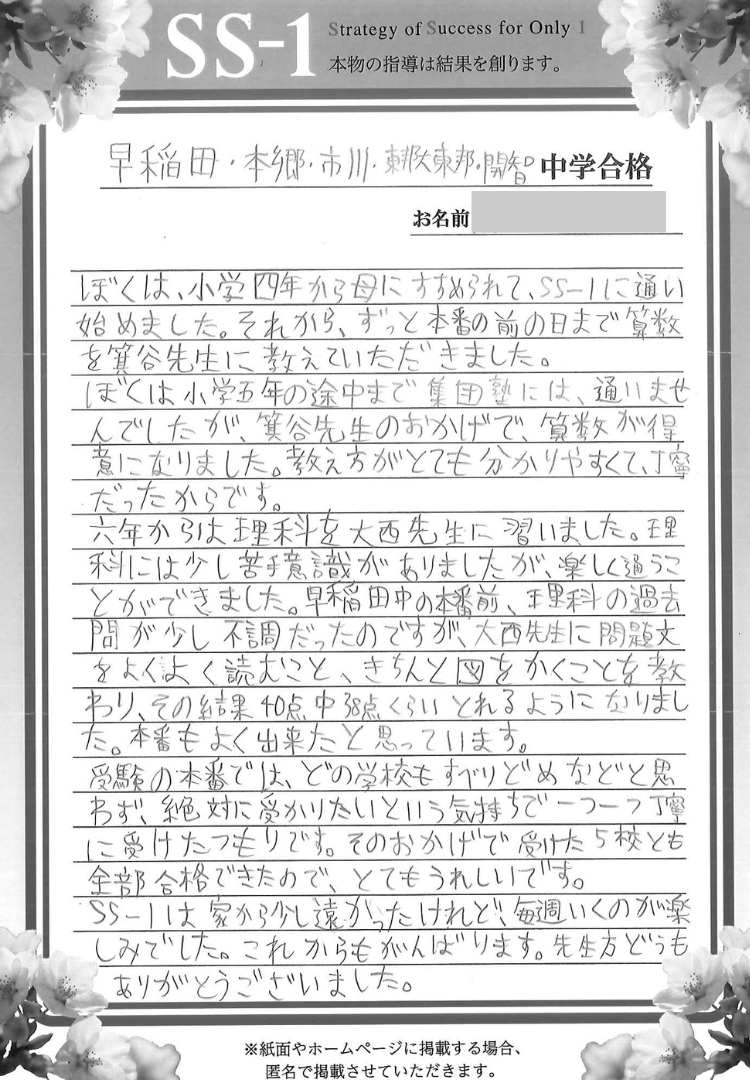 SS-1
Strategy of Success for Only 1
本物の指導は結果を創ります。
早稲田・本郷・市川・東邦大東邦・開智 中学合格
お名前
ぼくは、小学四年から母にすすめられて、SS-1に通い
始めました。それから、ずっと本番の前の日まで算数
を箕谷先生に教えていただきました。
ぼくは小学五年の途中まで集団塾には、通いませ
んでしたが、箕谷先生のおかげで、算数が得
意になりました。教え方がとても分かりやすくて、丁寧
だったからです。
六年からは理科を大西先生に習いました。理
科には少し苦手意識がありましたが、楽しく通うこ
とができました。早稲田中の本番前、理科の過去
問が少し不調だったのですが、大西先生に問題文
をよくよく読むこと、きちんと図をかくことを教
わり、その結果40点中38点くらいとれるようになりまし
た。本番もよく出来たと思っています。
受験の本番では、どの学校もすべりどめなどと思
わず、絶対に受かりたいという気持ちで一つ一つ丁寧
に受けたつもりです。そのおかげで受けた5校とも
全部合格できたので、とてもうれしいです。
SS-1は家から少し遠かったけれど、毎週いくのが楽
しみでした。これからもがんばります。先生方どうも
ありがとうございました。
※紙面やホームページに掲載する場合、
匿名で掲載させていただきます。